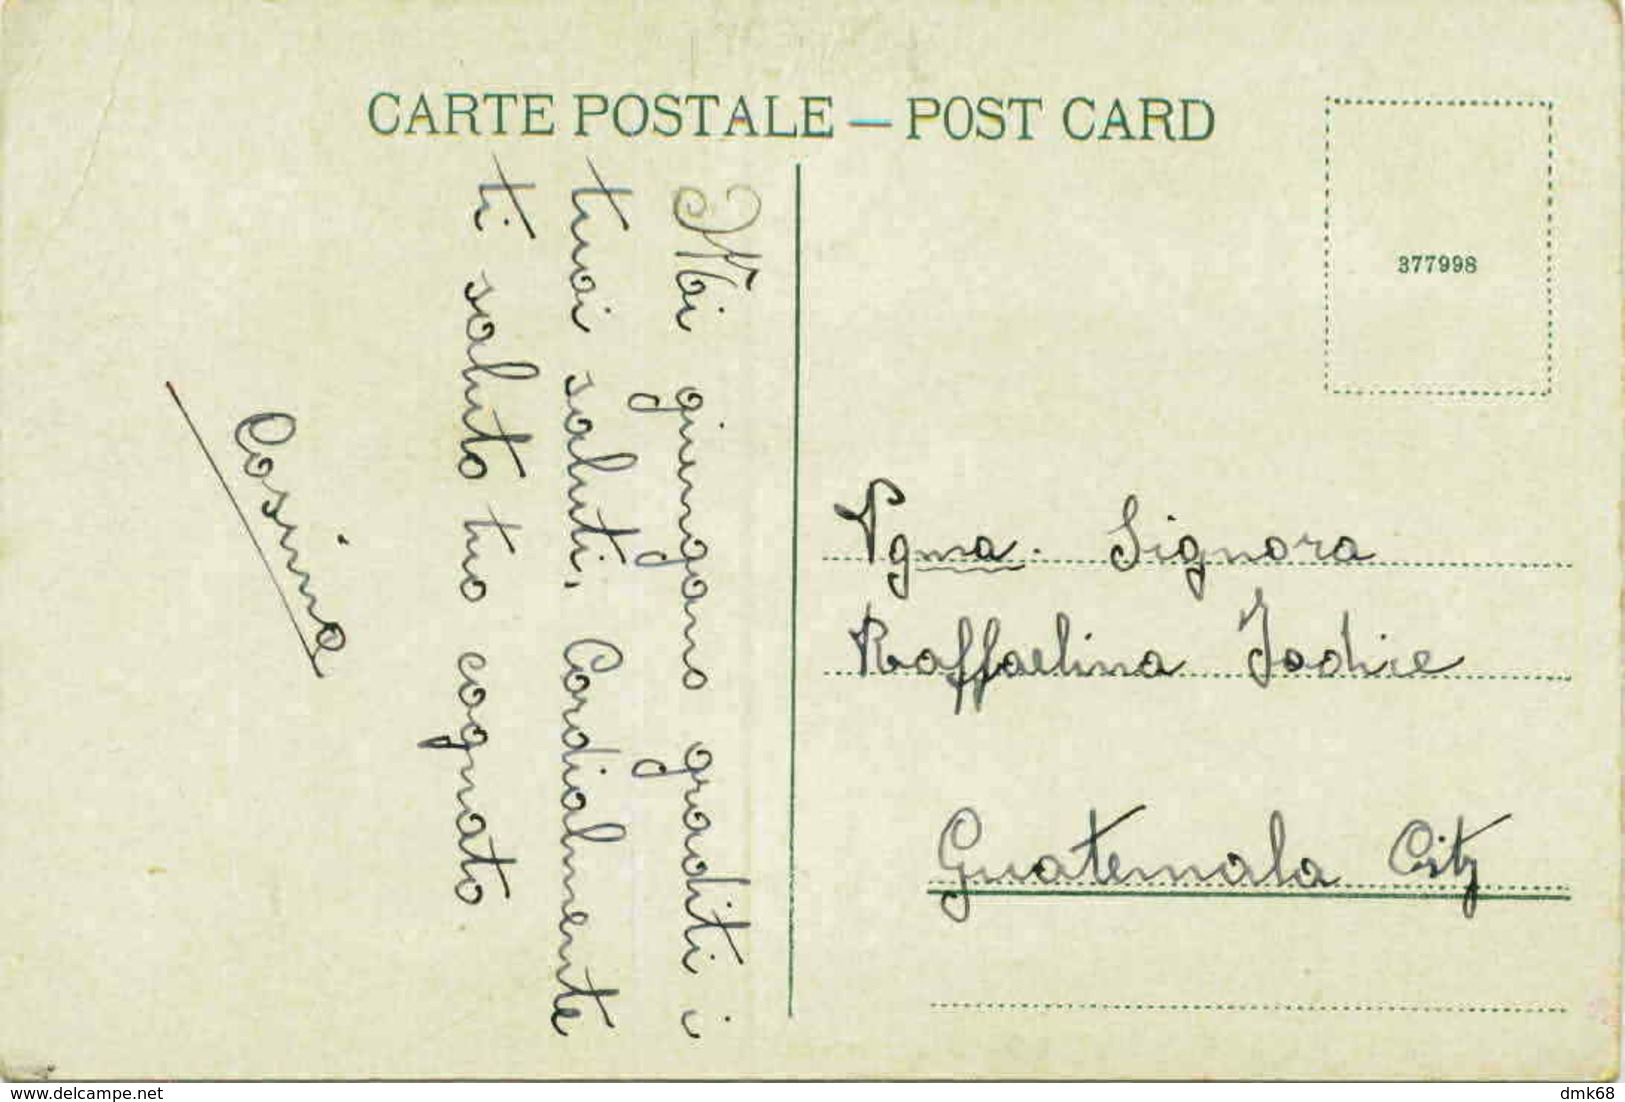 CARTE POSTALE — POST CARD
377998
Mi giungano graditi i
tuoi saluti, Cordialmente
ti saluto tuo cognato
Cosimo
Signora
Raffaelina
Guatemala City
delcampe.net
dmk68